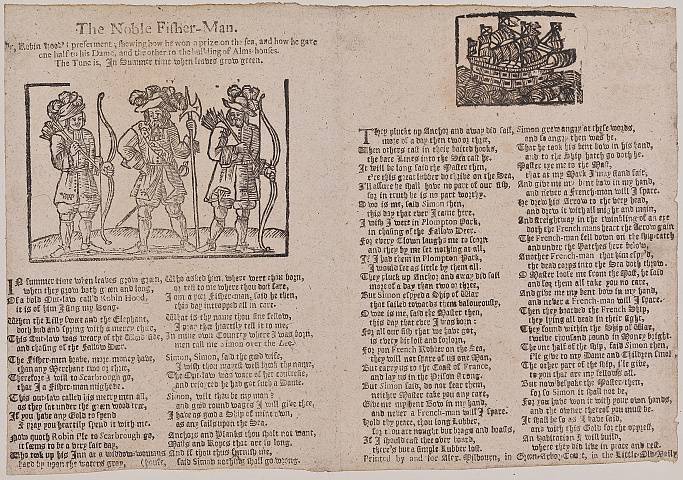 The Noble Fisher-Man.
Or, Robin Hood's preferment; shewing how he won a prize on the sea, and how he gave
one half to his Dame, and the other to the building of Alms-houses.
The Tune is, In Summer time when leaves grow green.
IN summer time when leaves grow green,
when they grow both green and long,
Of a bold Out-law call'd Robin Hood,
it is of him I sing my Song.
When the Lilly leaf and the Elephant,
doth bud and spring with a merry chear,
This Out-law was weary of the Wood side,
and chasing of the Fallow Deer.
The Fisher-men have more money have,
than any Merchant two or three,
Therefore I will to Scarborough go,
that I a Fisher-man might be.
This out-law called his merry men all,
as they sat under the green wood tree,
If you have any Gold to spend
I pray you heartily spend it with me.
Now quoth Robin I'le to Scarborough go,
it seems to be a very fair day,
Who took up his Inn at a widdow-womans
hard by upon the waters gray, (house,
Who asked him, where were thou born,
or tell to me where thou dost fare,
I am a poor Fisher-man, said he then,
this day intrapped all in care.
What is thy name thou fine fellow,
I pray thee heartily tell it to me,
In mine own Country where I was born,
men call me Simon over the Lee.
Simon, Simon, said the good wife,
I wish thou mayest well brook thy name,
The Out-law was ware of her courtesie,
and rejoyced he had got such a Dame.
Simon, wilt thou be my man?
and good round wages I will give thee,
I have as good a Ship of mine own,
as any sails upon the Sea.
Anchors and Planks thou shalt not want,
Masts and Ropes that are so long,
And if thou thus furnish me,
said Simon nothing shall go wrong.
They pluckt up Anchor and away did sail,
more of a day then two or three,
When others cast in their baited hooks,
the bare Lines into the Sea cast he.
It will be long said the Master then,
e're this great lubber do thrive on the Sea,
I'll assure he shall have no part of our fish,
for in truth he is no part worthy.
O wo is me, said Simon then,
this day that ever I came here,
I wish I were in Plompton Park,
in chasing of the Fallow Deer.
For every Clown laughs me to scorn
and they by me set nothing at all,
If I had them in Plompton Park,
I would set as little by them all.
They pluckt up Anchor and away did sail
more of a day than two or three,
But Simon espyed a Ship of War
that sailed towards them valourously,
O woe is me, said the Master then,
this day that ever I was born:
For all our fish that we have got,
is every bit lost and forlorn,
For yon French Robber on the Sea,
they will not spare of us one Man,
But carry us to the Coast of France,
and lay us in the Prison strong.
But Simon said, do not fear them,
neither Master take you any care,
Give me my bent Bow in my hand,
and never a French-man will I spare.
Hold thy peace, thou long Lubber,
for thou art nought but brags and boasts,
If I should cast thee over board,
there's but a simple Lubber lost.
Simon grew angry at these words,
and so angry then was he,
That he took his bent bow in his hand,
and to the Ship hatch go doth he.
Master tye me to the Mast,
that at my Mark I may stand fair,
And give me my bent bow in my hand,
and never a French-man will I spare.
He drew his Arrow to the very head,
and drew it with all might and main,
And straightway in the twinkling of an eye
doth the French mans heart the Arrow gain
The French-man fell down on the ship hatch
and under the Hatches there below,
Another French-man that him espy'd,
the dead corps into the Sea doth throw.
O Master loose me from the Mast, he said
and for them all take you no care,
And give me my bent bow in my hand,
and never a French-man will I spare.
Then they boarded the French Ship,
they lying all dead in their sight,
They found within the Ship of War,
twelve thousand pound in Money bright.
The one half of the ship, said Simon then,
I'le give to my Dame and Children small,
The other part of the ship, I'le give
to you that are my fellows all.
But now bespake the Master then,
for so Simon it shall not be,
For you have won it with your own hands,
and the owner thereof you must be.
It shall be so as I have said,
and with this Gold for the opprest,
An Habitation I will build,
where they did live in peace and rest.
Printed by and for Alex. Milbourn, in Green-Arbor-Court, in the Little-Old-Baily